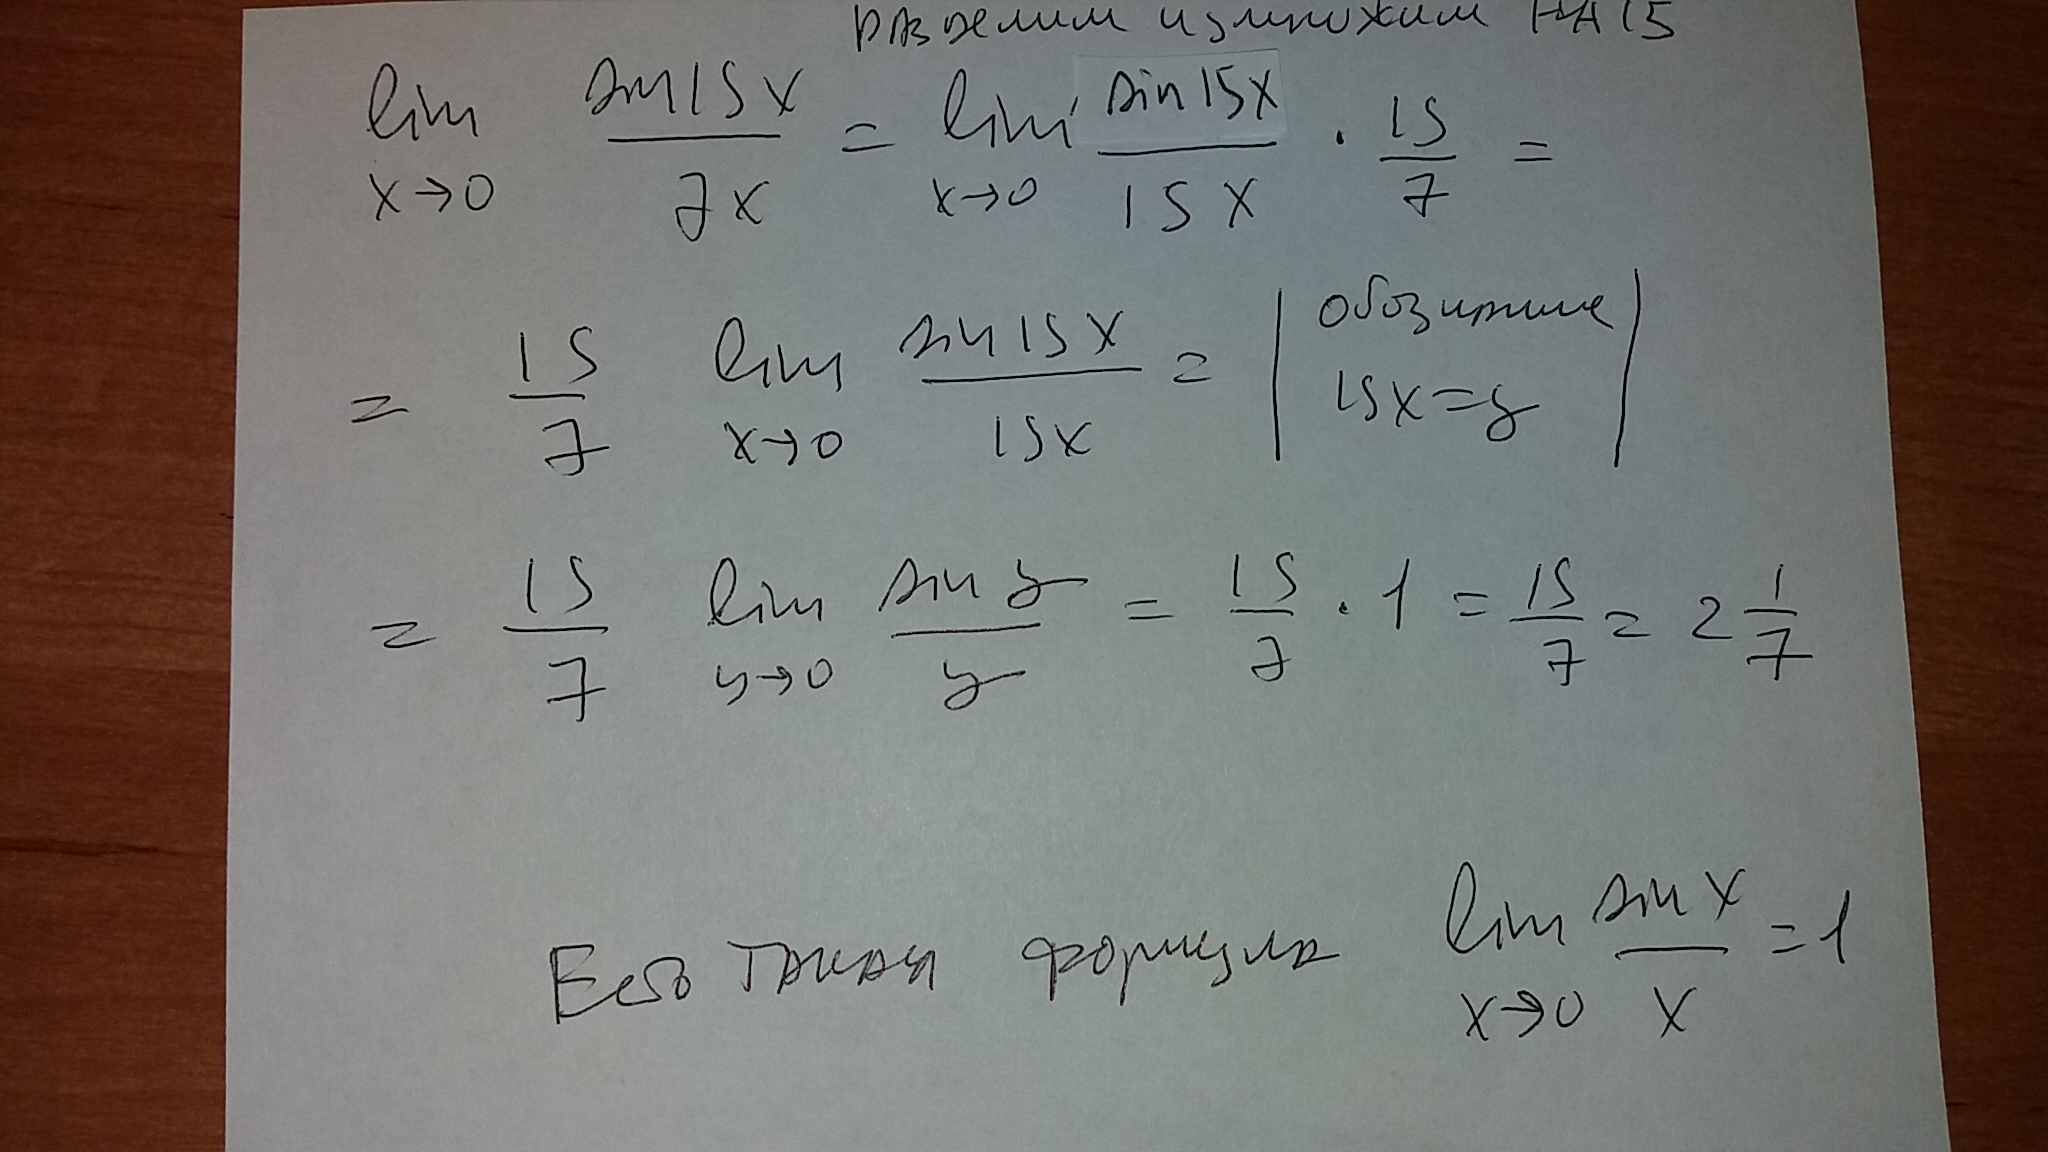 разделим и умножим НА 15
lim x→0 sin15x / 7x = lim x→0 sin 15x / 15x · 15/7 =
= 15/7 lim x→0 sin 15x / 15x = | обозначим 15x=y |
= 15/7 lim y→0 sin y / y = 15/7 · 1 = 15/7 = 2 1/7
Есть такая формула lim x→0 sin x / x = 1